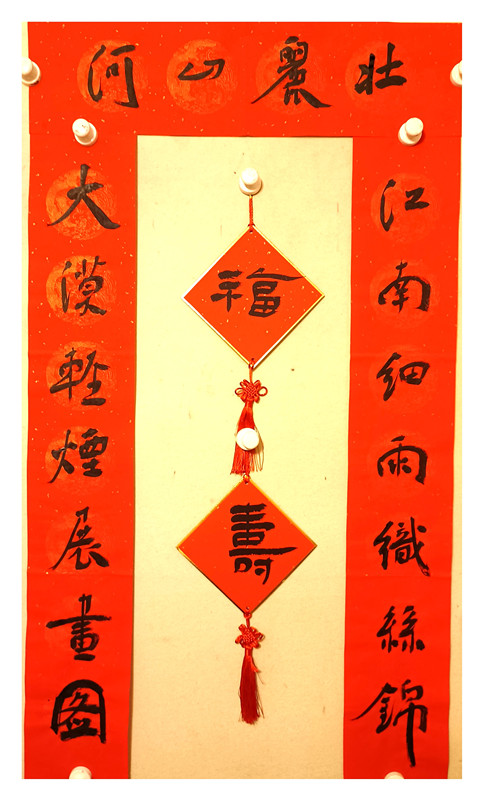 壯麗山河
江南細雨織絲錦
大漠輕煙展畫圖
福
壽